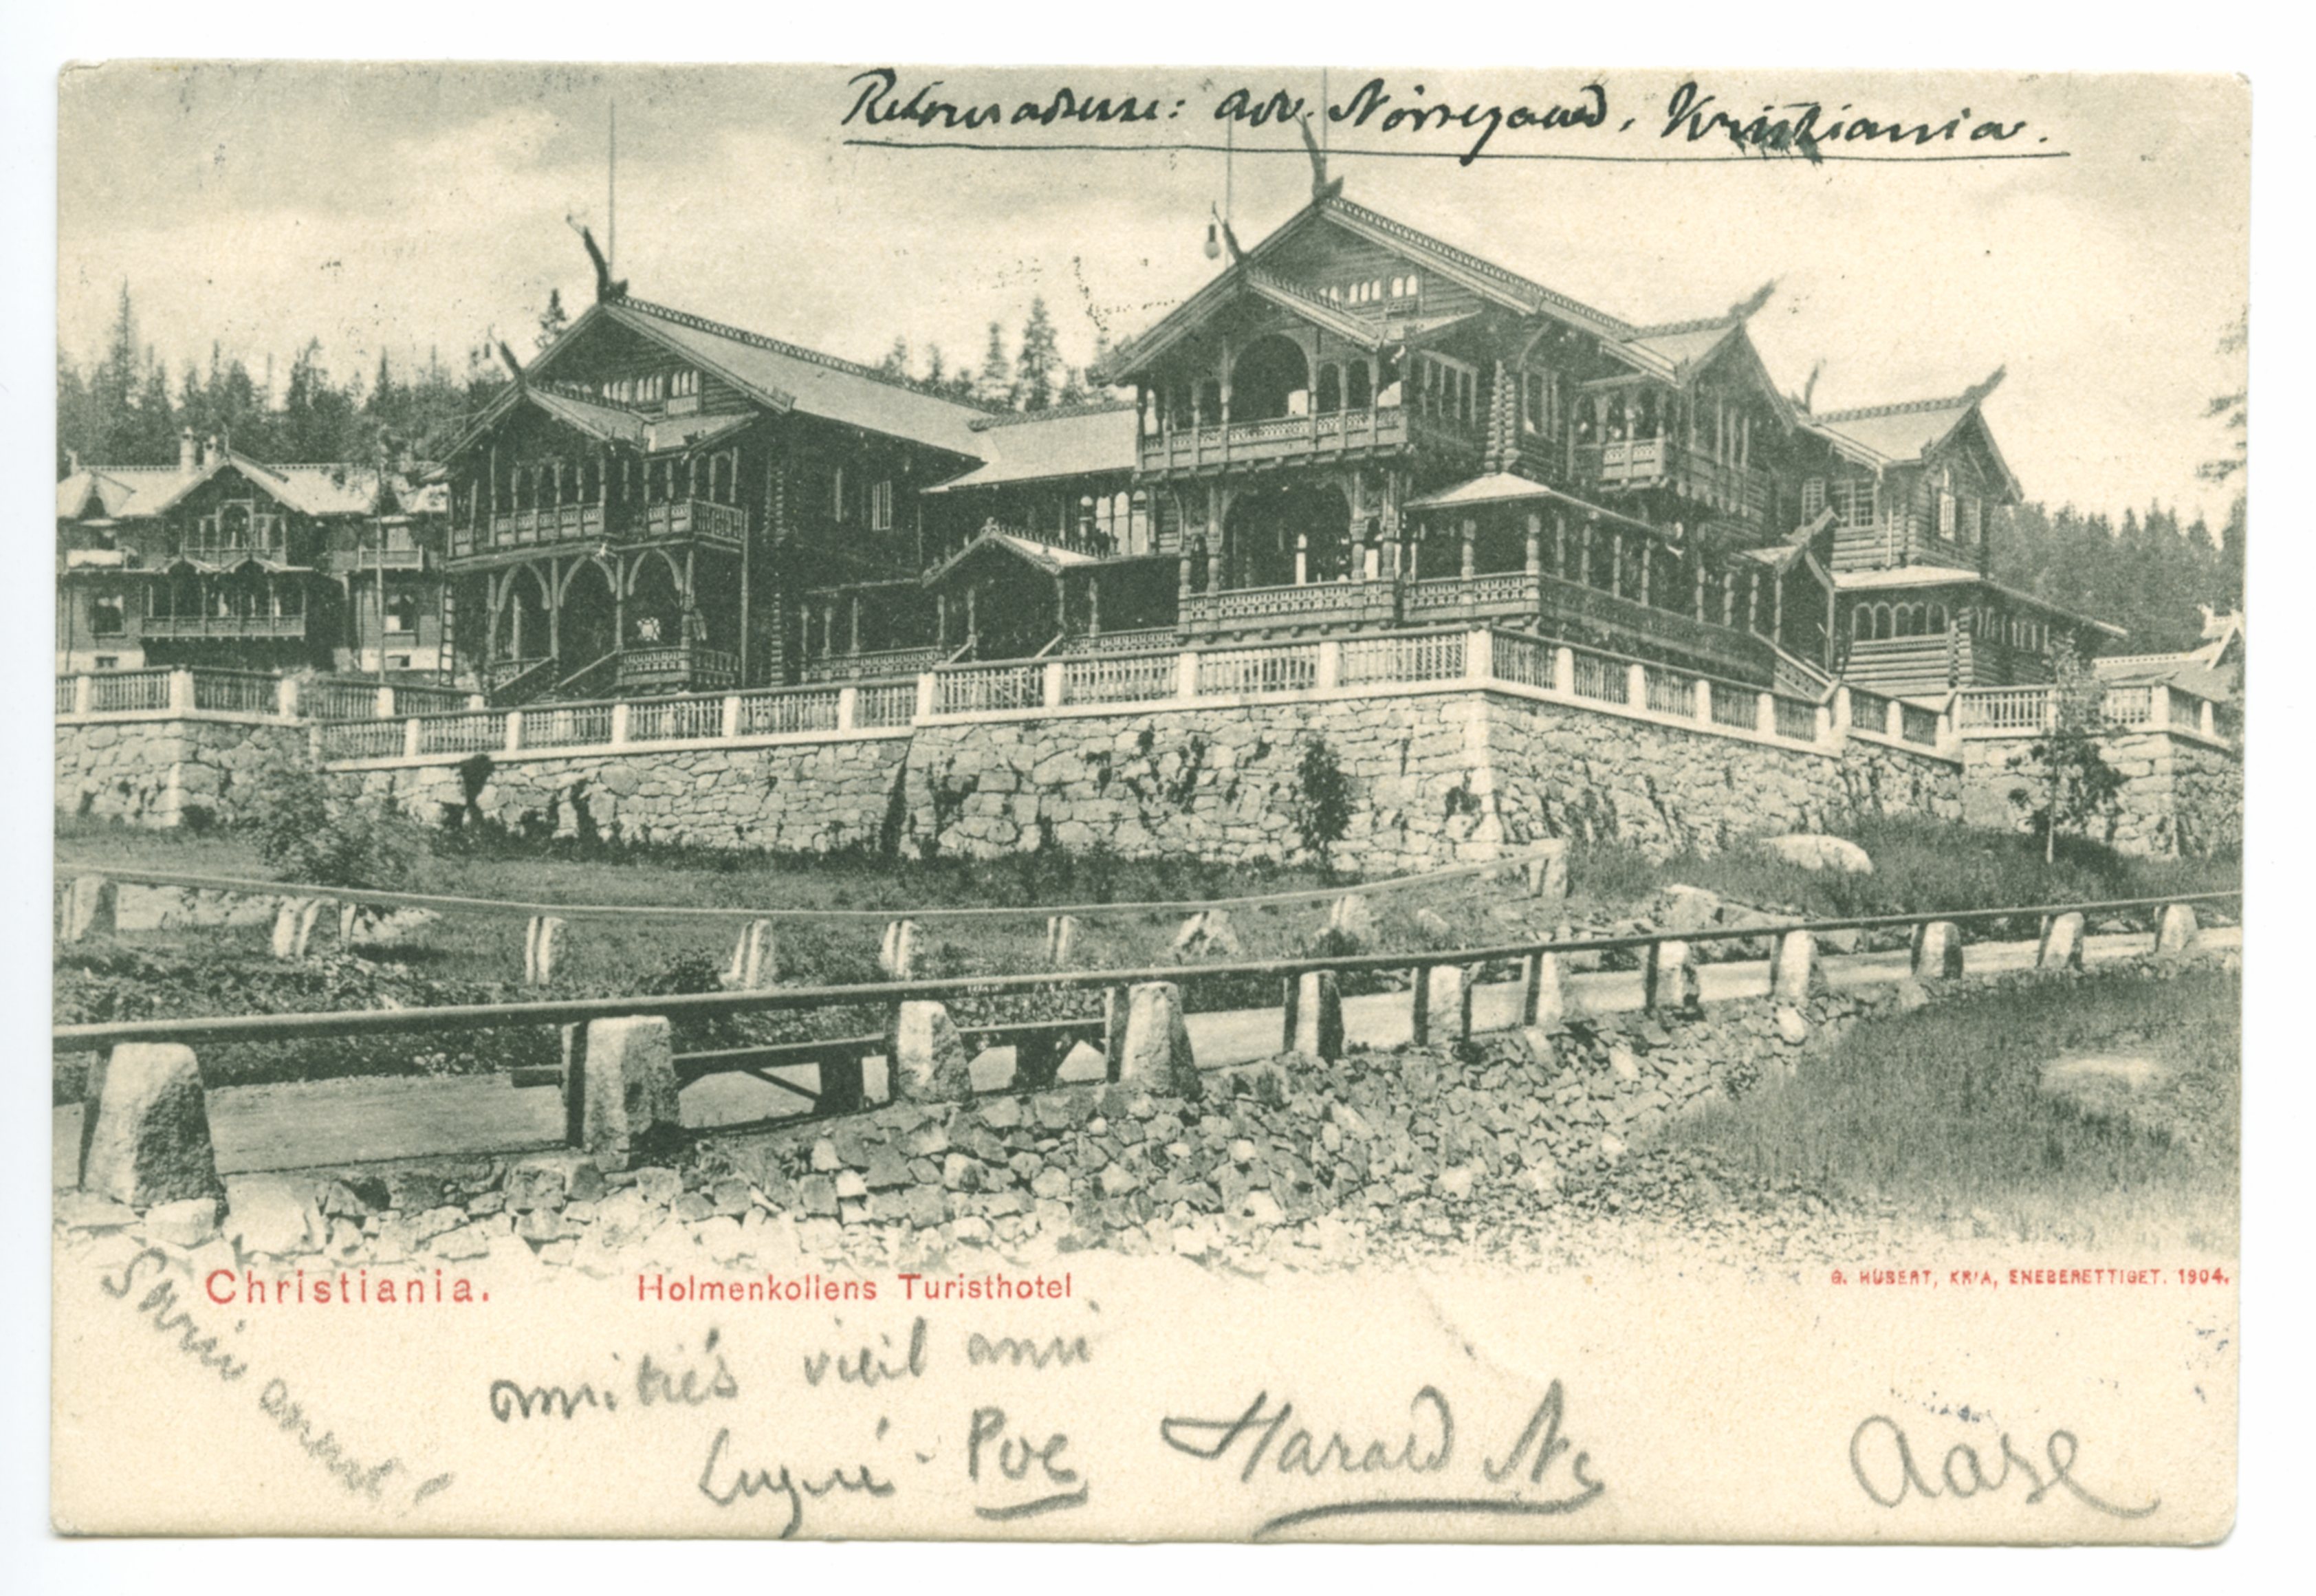 Retouradresse: adv. Nørregaard, Kristiania.
Christiania. Holmenkollens Turisthotel
G. HÜBERT, KR'A, ENEBERETTIGET. 1904.
Skriv
amitiés vieil ami
Lugné-Poe Harald N. Aase